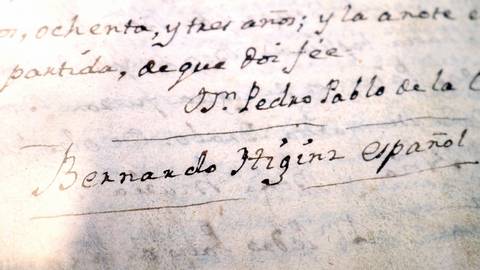 ochenta, y tres años; y la anote
partida, de que doi fée
Dn. Pedro Pablo de la
Bernardo Higinz español